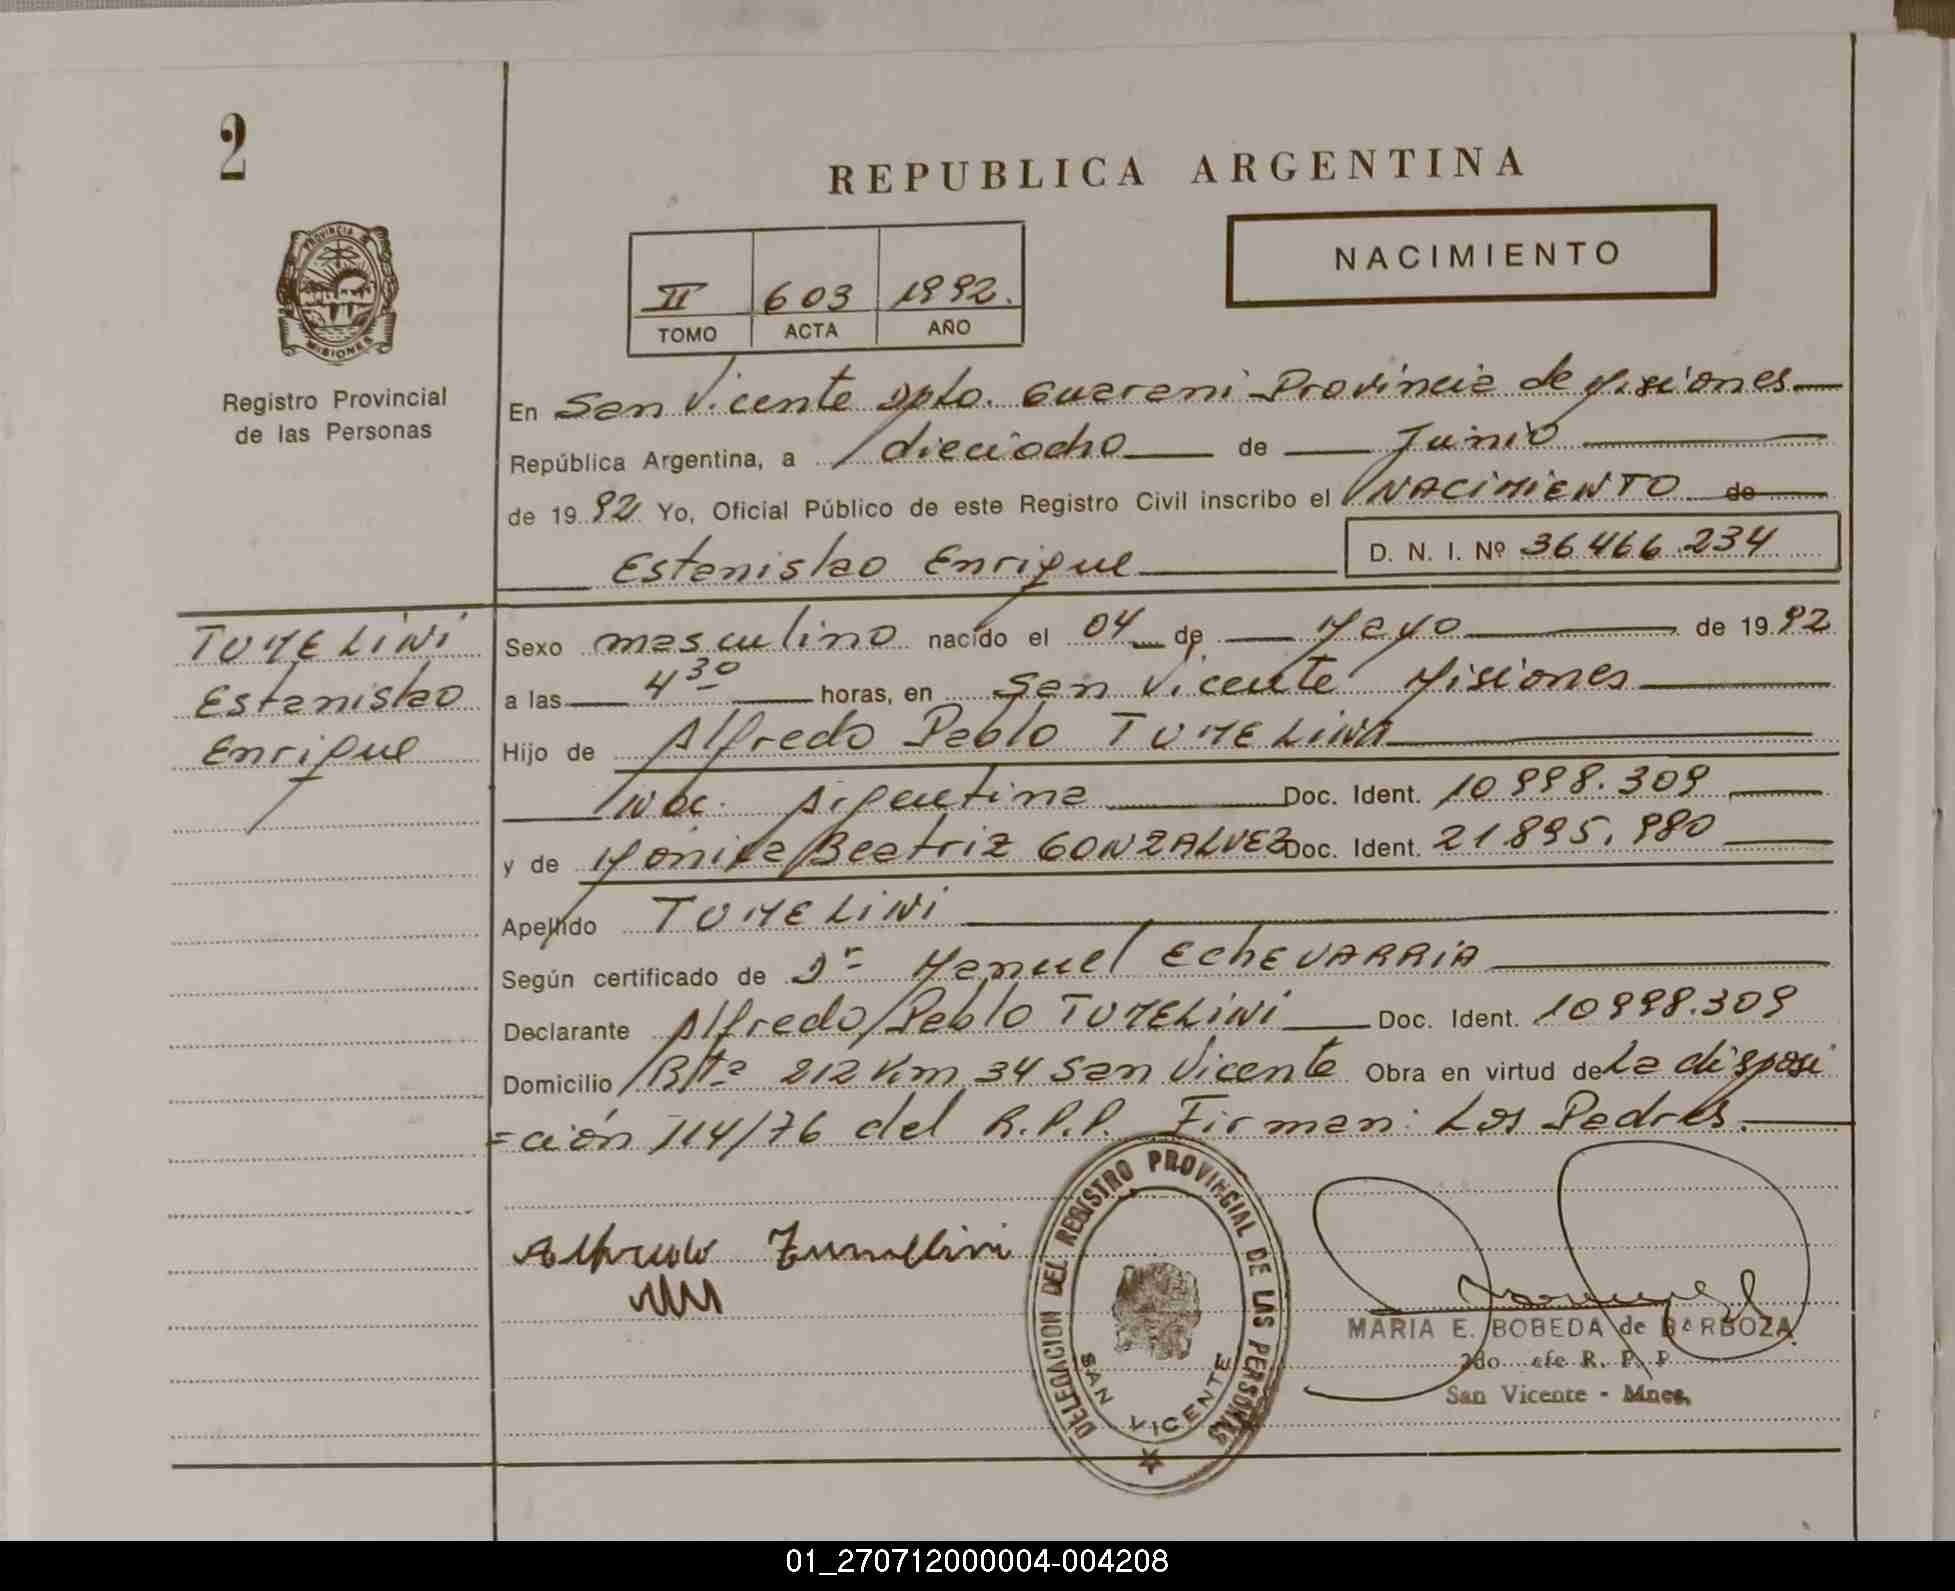 2
REPUBLICA ARGENTINA
NACIMIENTO
II 603 1992.
TOMO ACTA AÑO
PROVINCIA DE
MISIONES
Registro Provincial
de las Personas
En San Vicente Dpto. Guarani Provincia de Misiones
República Argentina, a dieciocho de Junio
de 1992 Yo, Oficial Público de este Registro Civil inscribo el NACIMIENTO de
Estanislao Enrique D. N. I. Nº 36466.234
TUMELINI
Estanislao
Enrique
Sexo masculino nacido el 04 de Mayo de 1992
a las 4 30 horas, en San Vicente Misiones
Hijo de Alfredo Pablo TUMELINI
Nac. Argentina Doc. Ident. 10998.309
y de Mónica Beatriz GONZALVEZ Doc. Ident. 21895.980
Apellido TUMELINI
Según certificado de Dr Manuel ECHEVARRIA
Declarante Alfredo Pablo TUMELINI Doc. Ident. 10998.309
Domicilio Rta 212 Km 34 San Vicente Obra en virtud de La disposi
=ción 114/76 del R.P.P. Firman: Los Padres.
Alfredo Tumelini
DELEGACION DEL REGISTRO PROVINCIAL DE LAS PERSONAS
SAN VICENTE
MARIA E. BOBEDA de BARBOZA
2do R. P. P
San Vicente - Mnes.
01_270712000004-004208